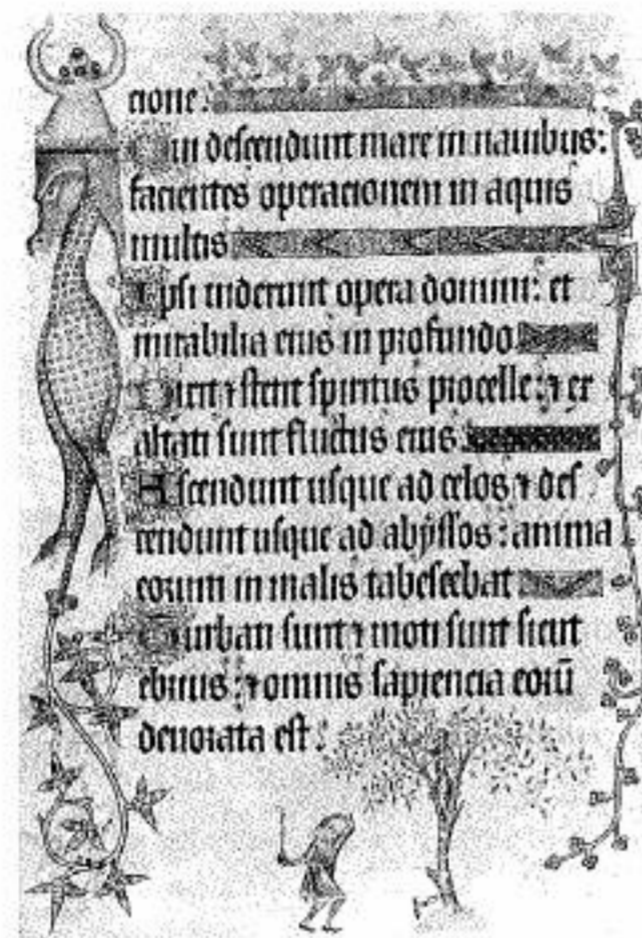 cione.
Qui descendunt mare in nauibus:
facientes operacionem in aquis
multis
Ipsi uiderunt opera domini: et
mirabilia eius in profundo
Dixit ⁊ stetit spiritus procelle: ⁊ ex
altati sunt fluctus eius
Ascendunt usque ad celos ⁊ des
cendunt usque ad abyssos: anima
eorum in malis tabescebat
Turbati sunt ⁊ moti sunt sicut
ebrius: ⁊ omnis sapiencia eorū
deuorata est: